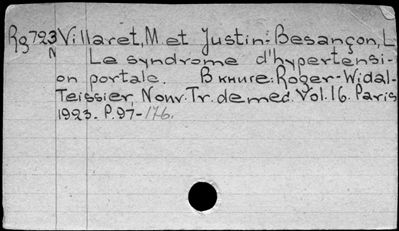 Rg723 Villaret, M et Justin-Besançon, L
N Le syndrome d'hypertensi-
on portale. В книге: Roger-Widal-
Teissier, Nouv. Tr. de med. Vol. 16. Paris
1923. P. 97-176.